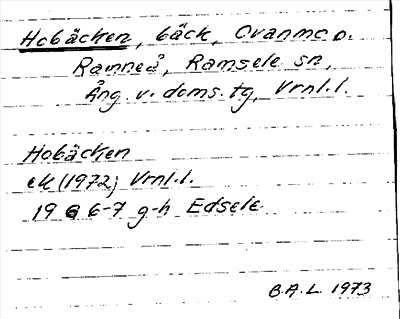 Hobäcken, bäck, Ovanmo o.
Ramneå, Ramsele sn,
Ång. v. doms. tg, Vrnl.l.
Hobäcken
ek (1972) Vrnl.l.
19 G 6-7 g-h Edsele
B.A.L. 1973